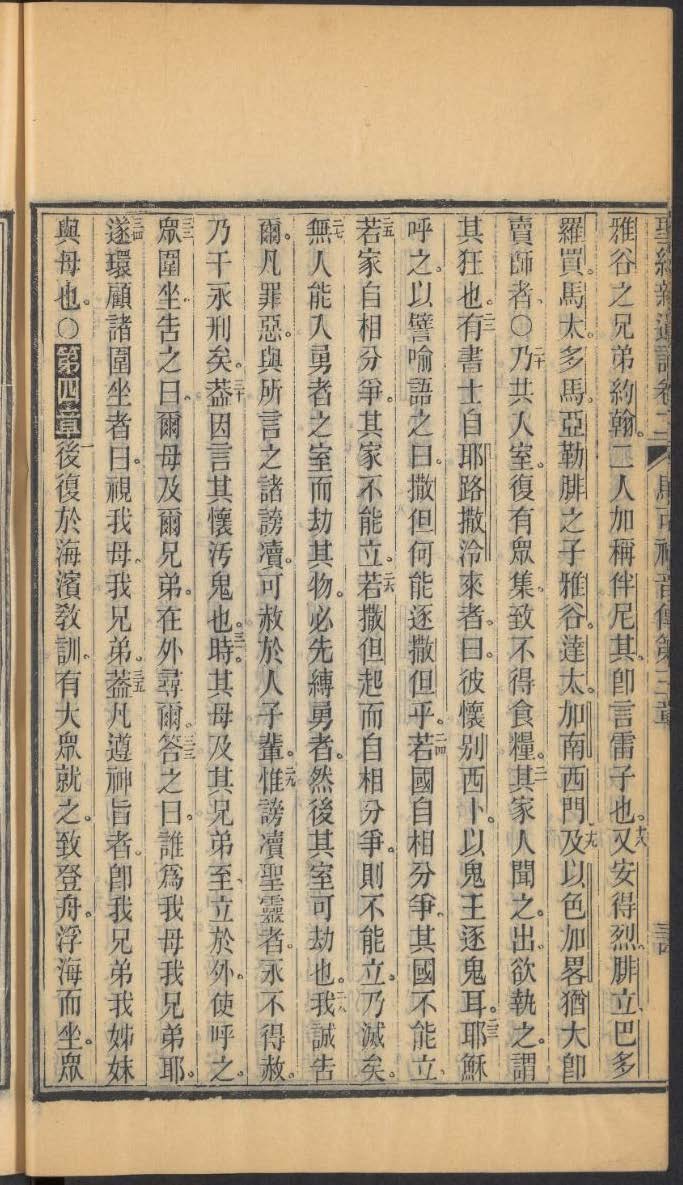 聖經新遺詔卷二 馬可福音傳第三章 言
雅谷之兄弟約翰。二人加稱伴尼其、卽言雷子也。十八又安得烈。腓立、巴多
羅買。馬太。多馬。亞勒腓之子雅谷。達太。加南西門、十九及以色加畧猶大卽
賣師者、○二十乃共入室。復有眾集、致不得食糧。二一其家人聞之。出欲執之。謂
其狂也。二二有書士自耶路撒冷來者。曰。彼懷別西卜。以鬼王逐鬼耳。二三耶穌
呼之。以譬喻語之曰。撒但何能逐撒但乎。二四若國自相分爭、其國不能立、
二五若家自相分爭。其家不能立。二六若撒但起而自相分爭。則不能立。乃滅矣。
二七無人能入勇者之室而劫其物。必先縛勇者。然後其室可劫也。二八我誠告
爾。凡罪惡。與所言之諸謗凟。可赦於人子輩。二九惟謗凟聖靈者。永不得赦。
乃干永刑矣。三十葢因言其懷汚鬼也。三一時。其母及其兄弟至、立於外。使呼之。
三二眾圍坐。告之曰。爾母及爾兄弟。在外尋爾。三三答之曰。誰爲我母我兄弟耶。
三四遂環顧諸圍坐者曰。視我母、我兄弟。三五葢凡遵神旨者。卽我兄弟我姊妹
與母也。○第四章一後復於海濱敎訓。有大眾就之。致登舟。浮海而坐。眾